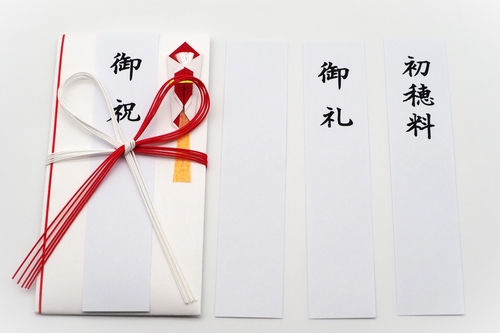 御祝
御礼
初穂料